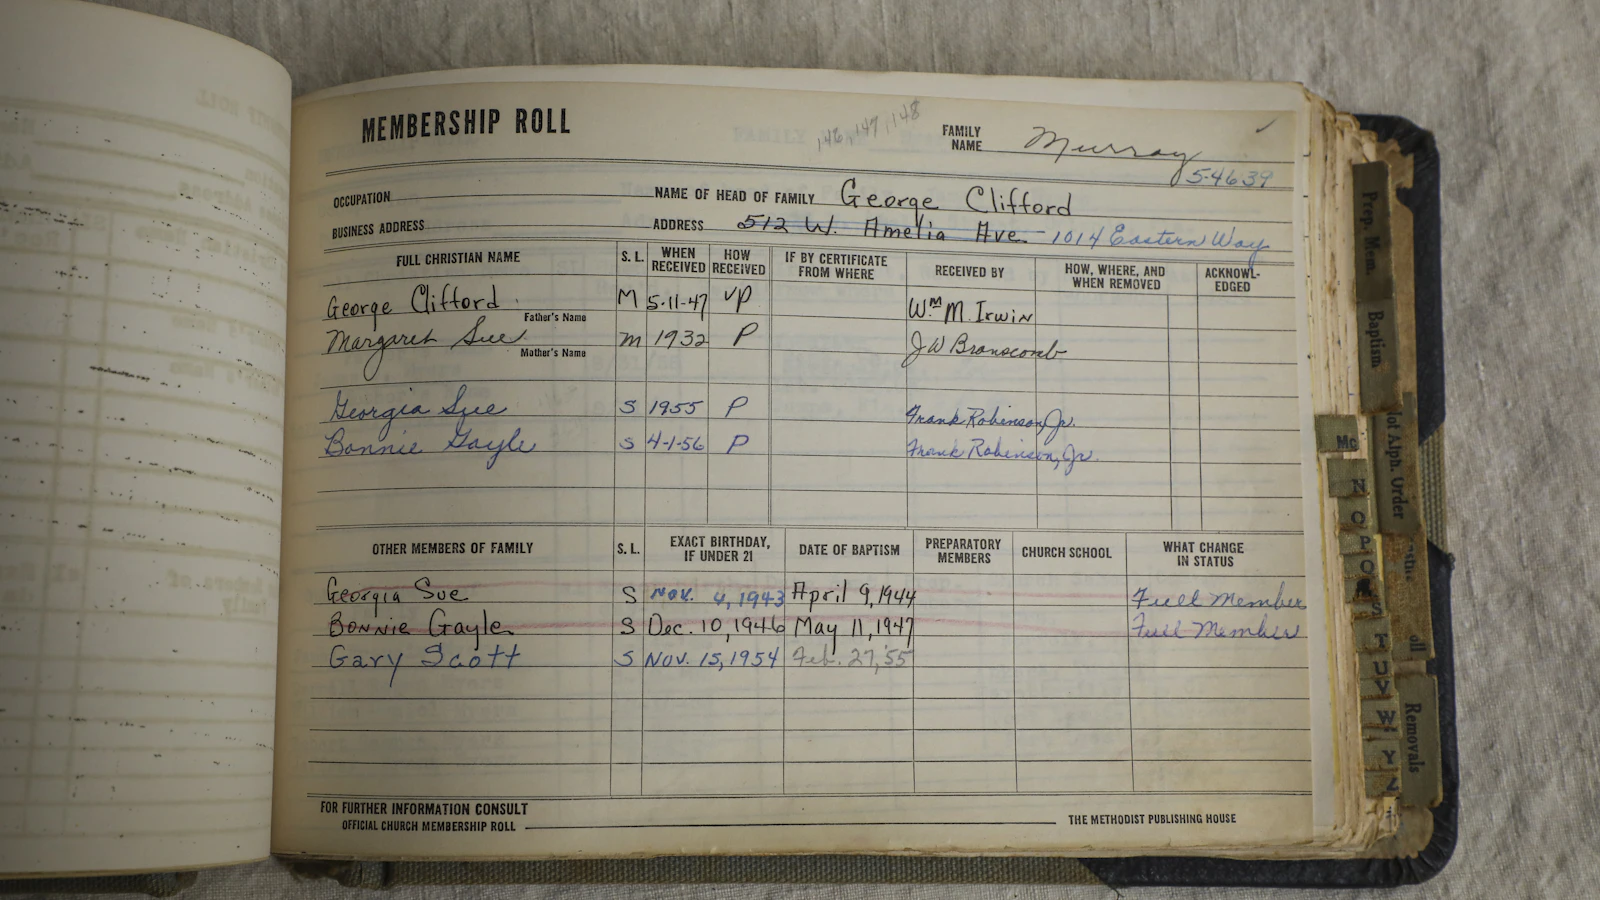 MEMBERSHIP ROLL
146, 147, 148
FAMILY NAME Murray
5-4639
OCCUPATION
NAME OF HEAD OF FAMILY George Clifford
BUSINESS ADDRESS
ADDRESS 512 W. Amelia Ave. 1014 Eastern Way
FULL CHRISTIAN NAME S. L. WHEN RECEIVED HOW RECEIVED IF BY CERTIFICATE FROM WHERE RECEIVED BY HOW, WHERE, AND WHEN REMOVED ACKNOWL-EDGED
George Clifford M 5-11-47 VP Wm. M. Irwin
Father's Name
Margaret Sue m 1932 P J W Branscomb
Mother's Name
Georgia Sue S 1955 P Frank Robinson, Jr.
Bonnie Gayle S 4-1-56 P Frank Robinson, Jr.
OTHER MEMBERS OF FAMILY S. L. EXACT BIRTHDAY, IF UNDER 21 DATE OF BAPTISM PREPARATORY MEMBERS CHURCH SCHOOL WHAT CHANGE IN STATUS
Georgia Sue S Nov. 4, 1943 April 9, 1944 Full Member
Bonnie Gayle S Dec. 10, 1946 May 11, 1947 Full Member
Gary Scott S Nov. 15, 1954 Feb. 27, '55
FOR FURTHER INFORMATION CONSULT
OFFICIAL CHURCH MEMBERSHIP ROLL THE METHODIST PUBLISHING HOUSE
Prep. Mem.
Baptism
Not Alph. Order
Removals
Mc
N
O
P
Q
S
T
U
V
W
Y
Z